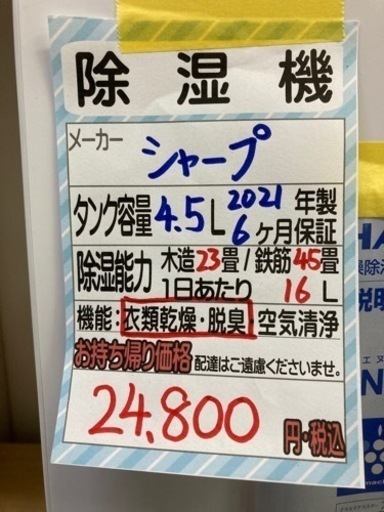 除湿機
メーカー シャープ
タンク容量 4.5L 2021年製
6ヶ月保証
除湿能力 木造23畳/鉄筋45畳
1日あたり 16L
機能:衣類乾燥・脱臭 空気清浄
お持ち帰り価格 配達はご遠慮くださいませ。
24,800 円・税込